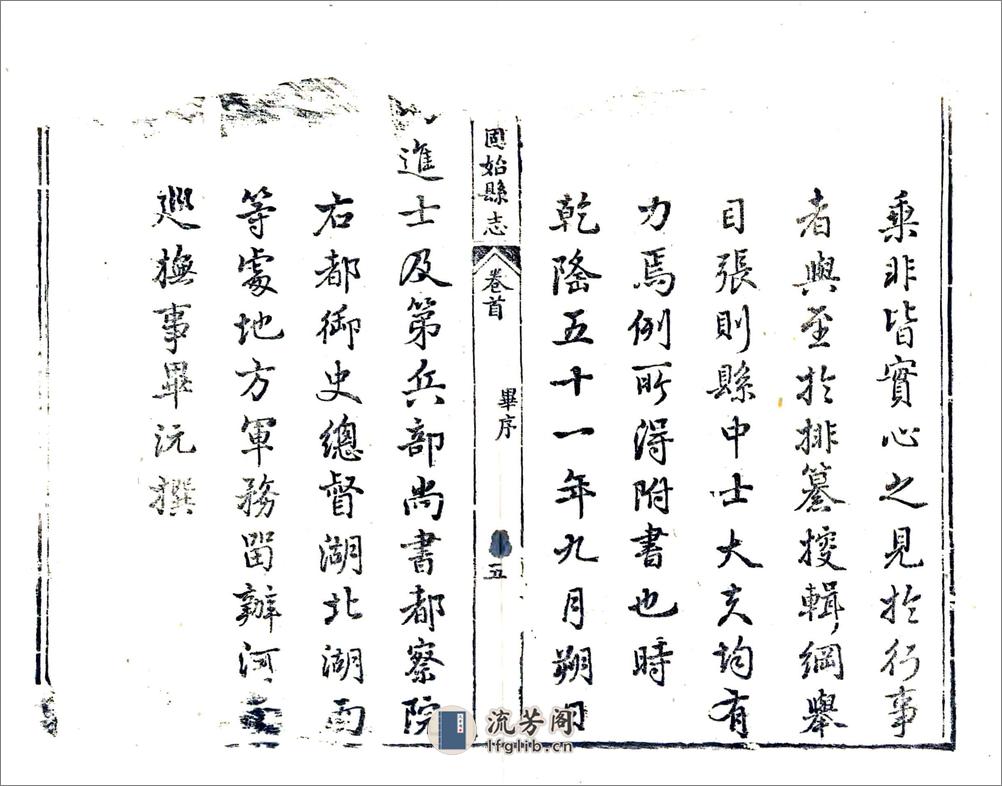 乘非皆實心之見於行事
者與至於排纂搜輯綱舉
目張則縣中士大夫均有
力焉例所得附書也時
乾隆五十一年九月朔日
固始縣志 卷首 畢序 五
進士及第兵部尚書都察院
右都御史總督湖北湖南
等處地方軍務留辦河
巡撫事畢沅撰
流芳阁
lfglib.cn